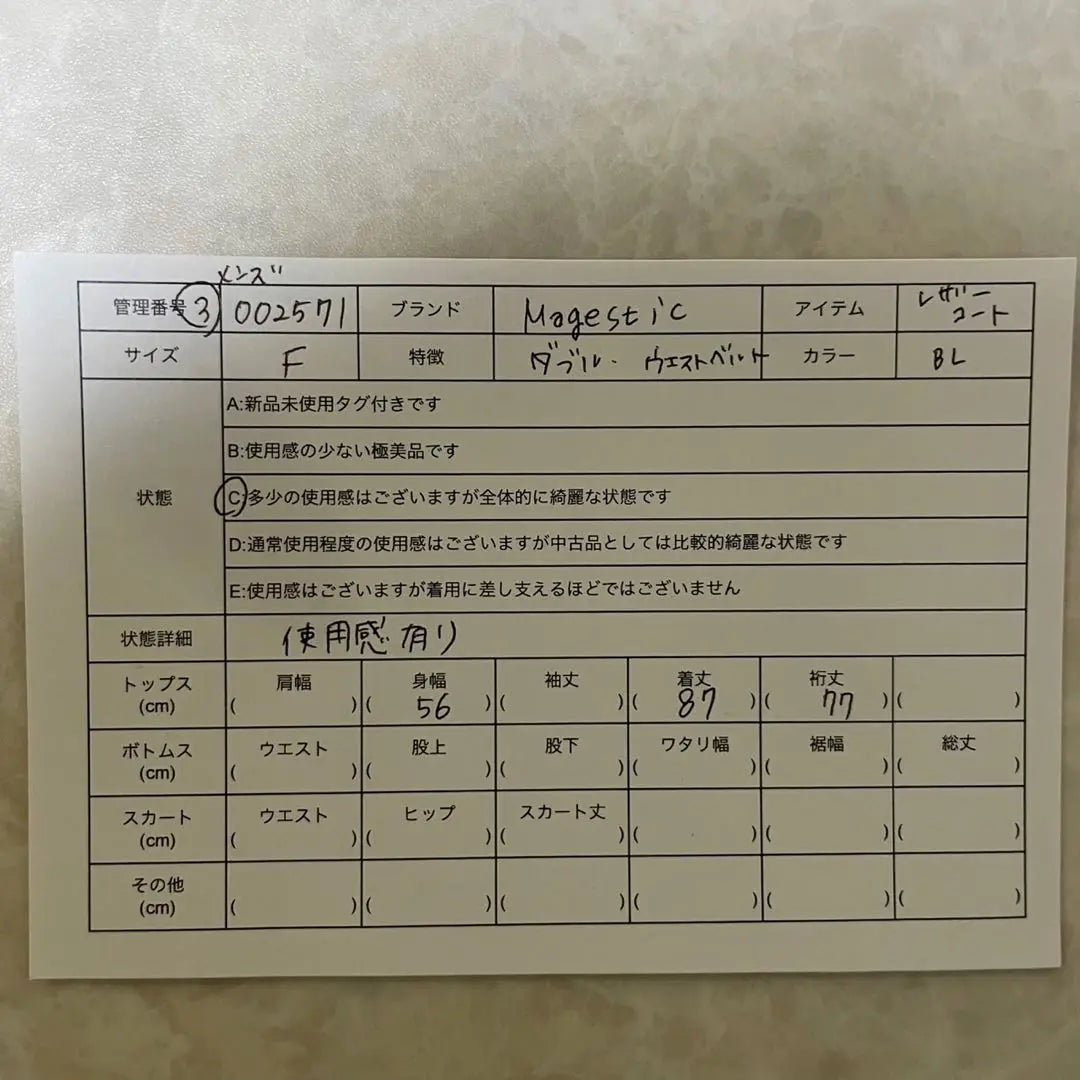 メンズ
管理番号 ③ 002571 ブランド Magestic アイテム レザーコート
サイズ F 特徴 ダブル・ウエストベルト カラー BL
状態
A:新品未使用タグ付きです
B:使用感の少ない極美品です
C:多少の使用感はございますが全体的に綺麗な状態です
D:通常使用程度の使用感はございますが中古品としては比較的綺麗な状態です
E:使用感はございますが着用に差し支えるほどではございません
状態詳細 使用感有り
トップス 肩幅 身幅 袖丈 着丈 裄丈
(cm) ( ) ( 56 ) ( ) ( 87 ) ( 77 ) ( )
ボトムス ウエスト 股上 股下 ワタリ幅 裾幅 総丈
(cm) ( ) ( ) ( ) ( ) ( ) ( )
スカート ウエスト ヒップ スカート丈
(cm) ( ) ( ) ( ) ( ) ( ) ( )
その他
(cm) ( ) ( ) ( ) ( ) ( ) ( )